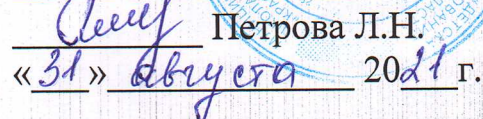 Петрова Л.Н.
«31» августа 2021г.